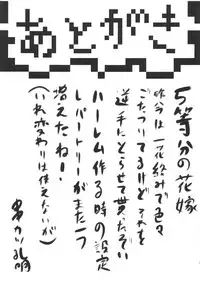 あとがき
5等分の花嫁
昨今は一花絡みで色々
ごたついてるけどそれを
逆手にとらせて貰ったぞい
ハーレム作る時の設定
レパートリーがまた一つ
増えたねー!
(いね変わりは使えないが)